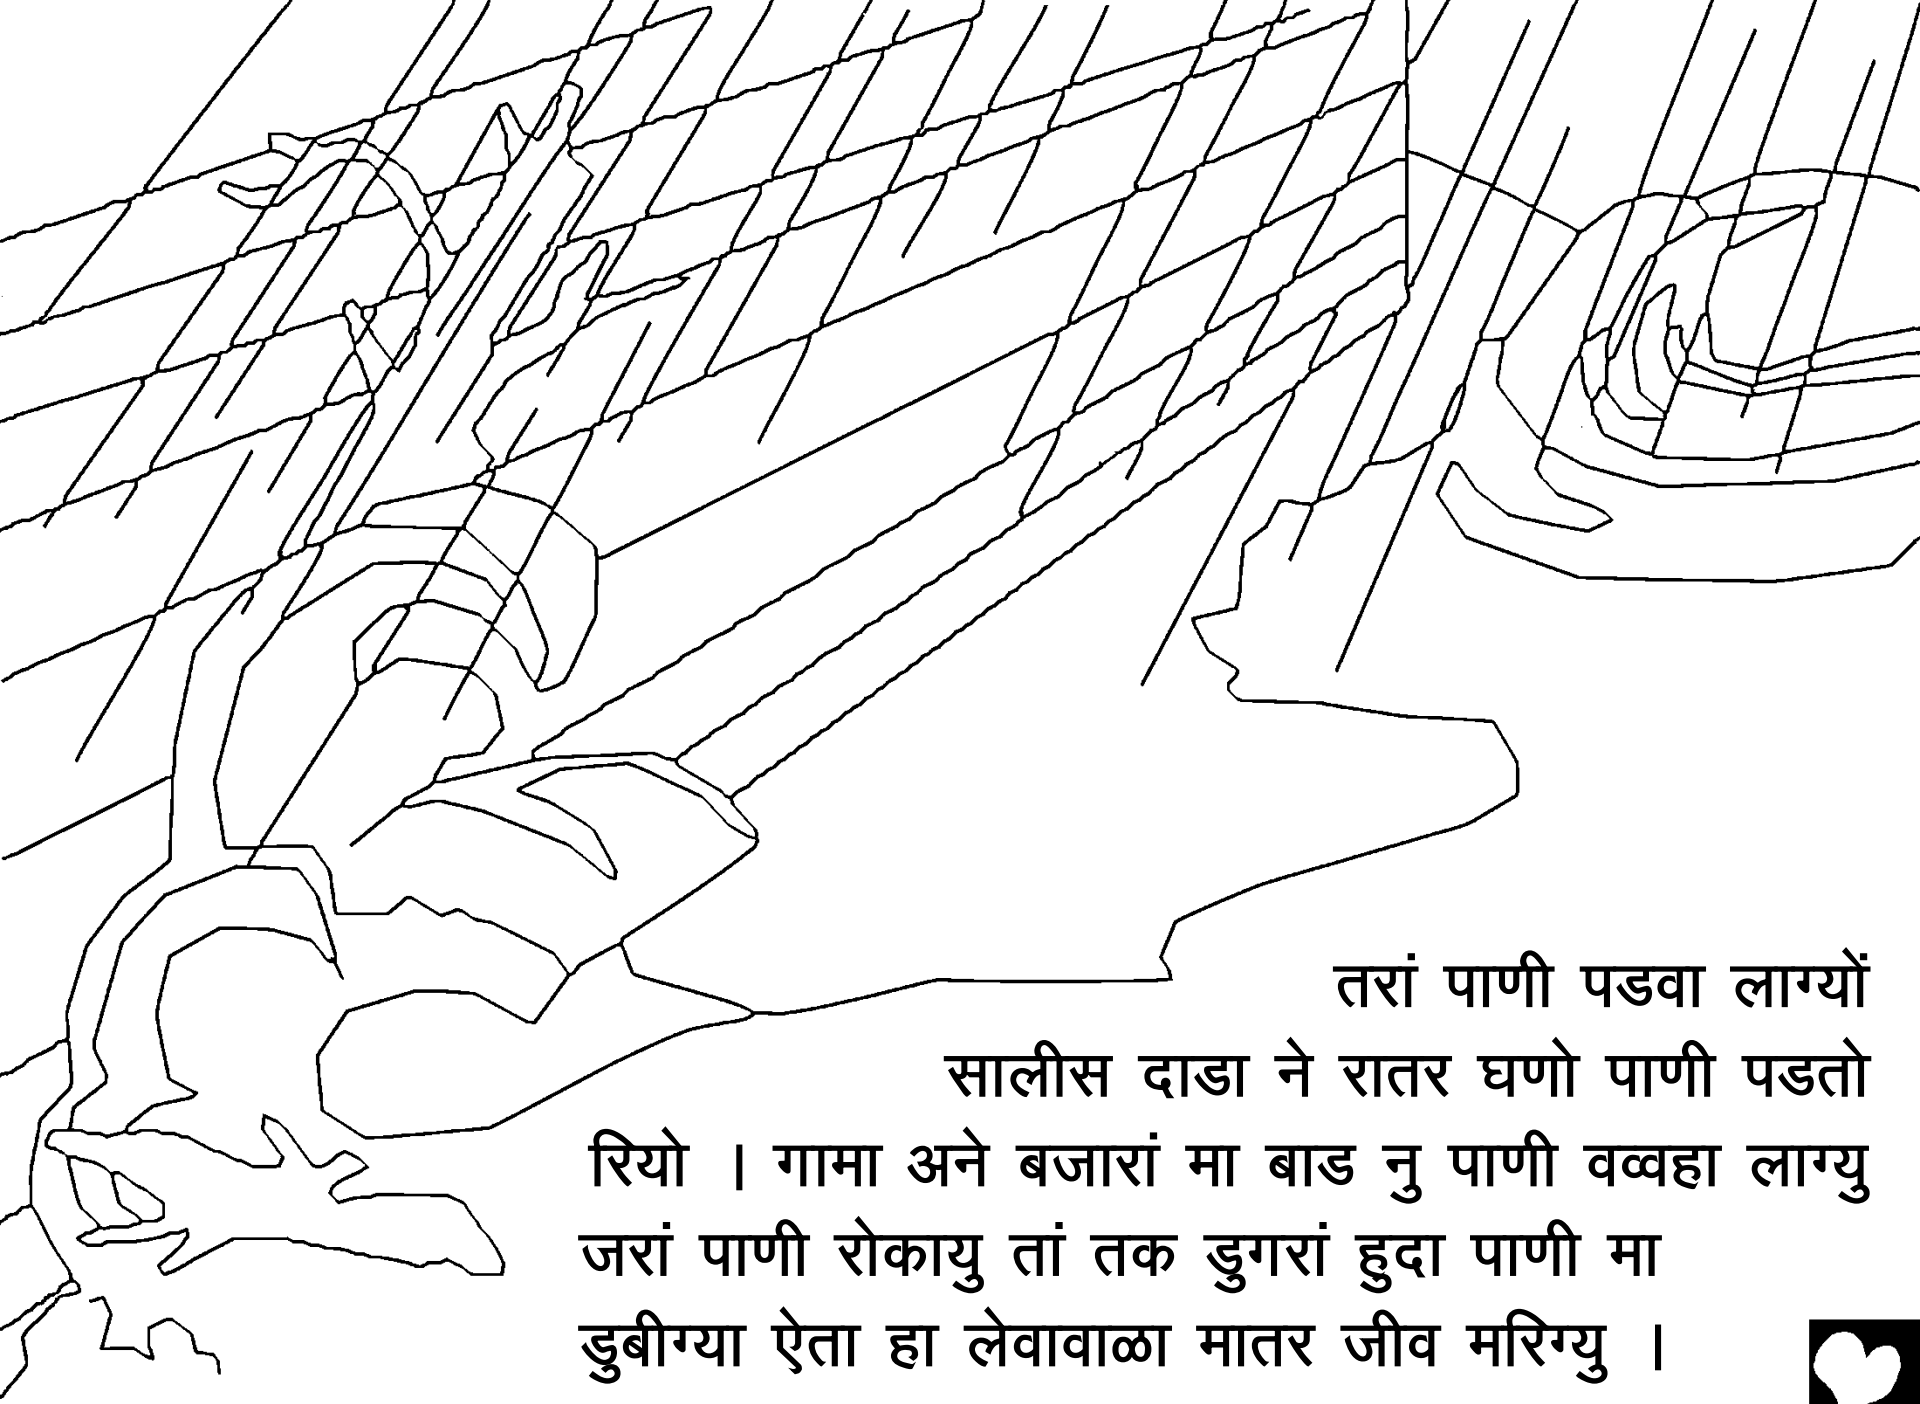 तरां पाणी पडवा लाग्यों
सालीस दाडा ने रातर घणो पाणी पडतो
रियो । गामा अने बजारां मा बाड नु पाणी वव्वहा लाग्यु
जरां पाणी रोकायु तां तक डुगरां हुदा पाणी मा
डुबीग्या ऐता हा लेवावाळा मातर जीव मरिग्यु ।